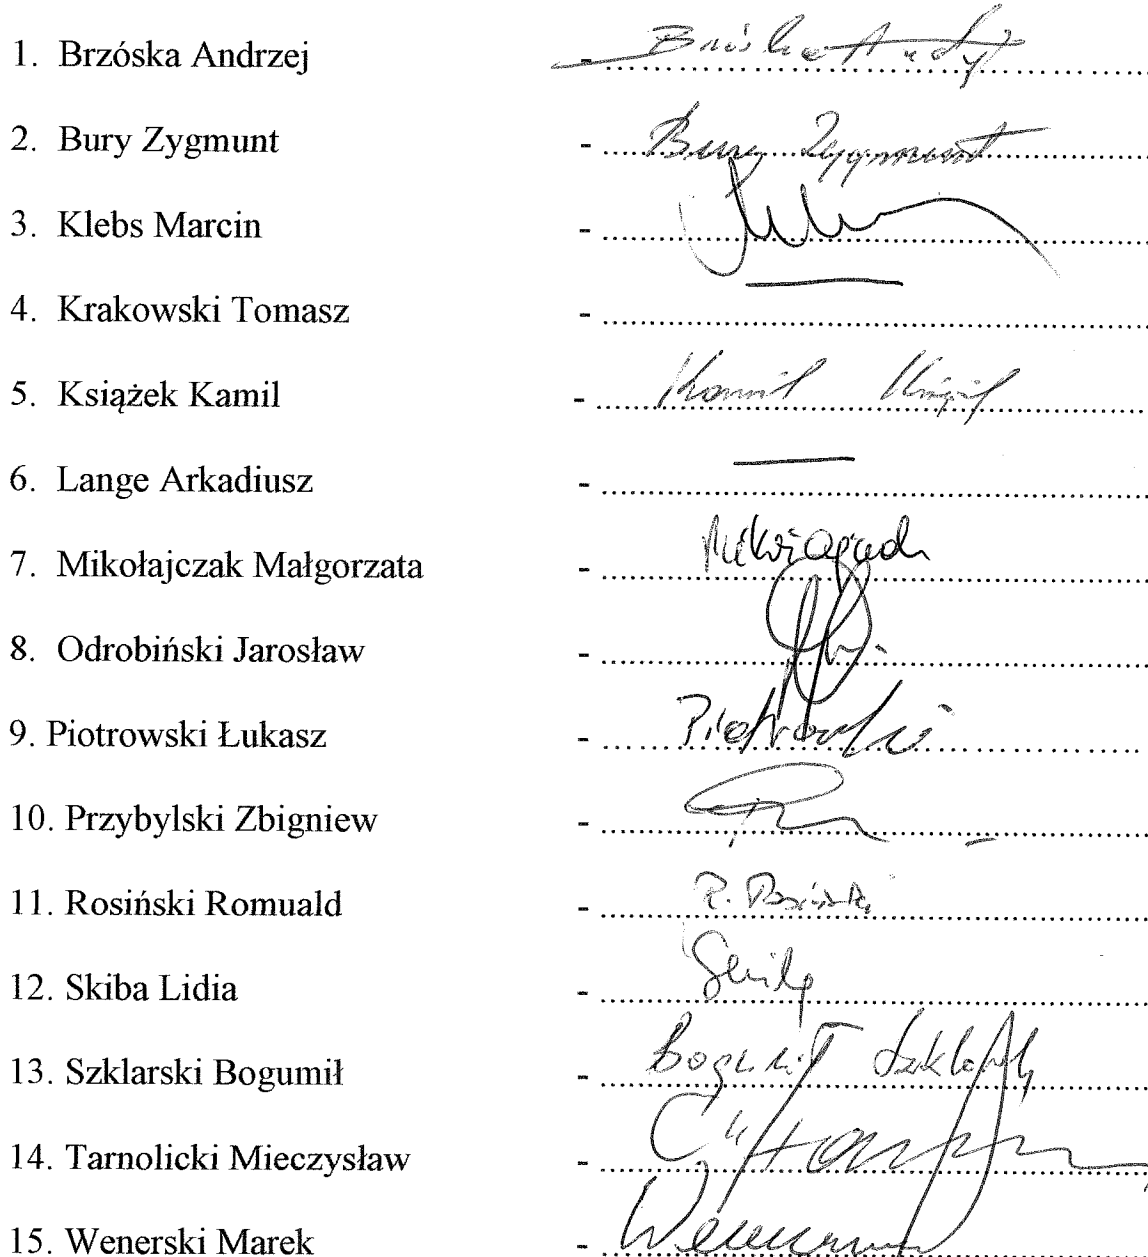 1. Brzóska Andrzej -
2. Bury Zygmunt - Bury Zygmunt
3. Klebs Marcin -
4. Krakowski Tomasz -
5. Książek Kamil - Kamil
6. Lange Arkadiusz -
7. Mikołajczak Małgorzata -
8. Odrobiński Jarosław -
9. Piotrowski Łukasz - Piotrowski
10. Przybylski Zbigniew -
11. Rosiński Romuald - R. Rosiński
12. Skiba Lidia -
13. Szklarski Bogumił - Bogumił Szklarski
14. Tarnolicki Mieczysław -
15. Wenerski Marek -